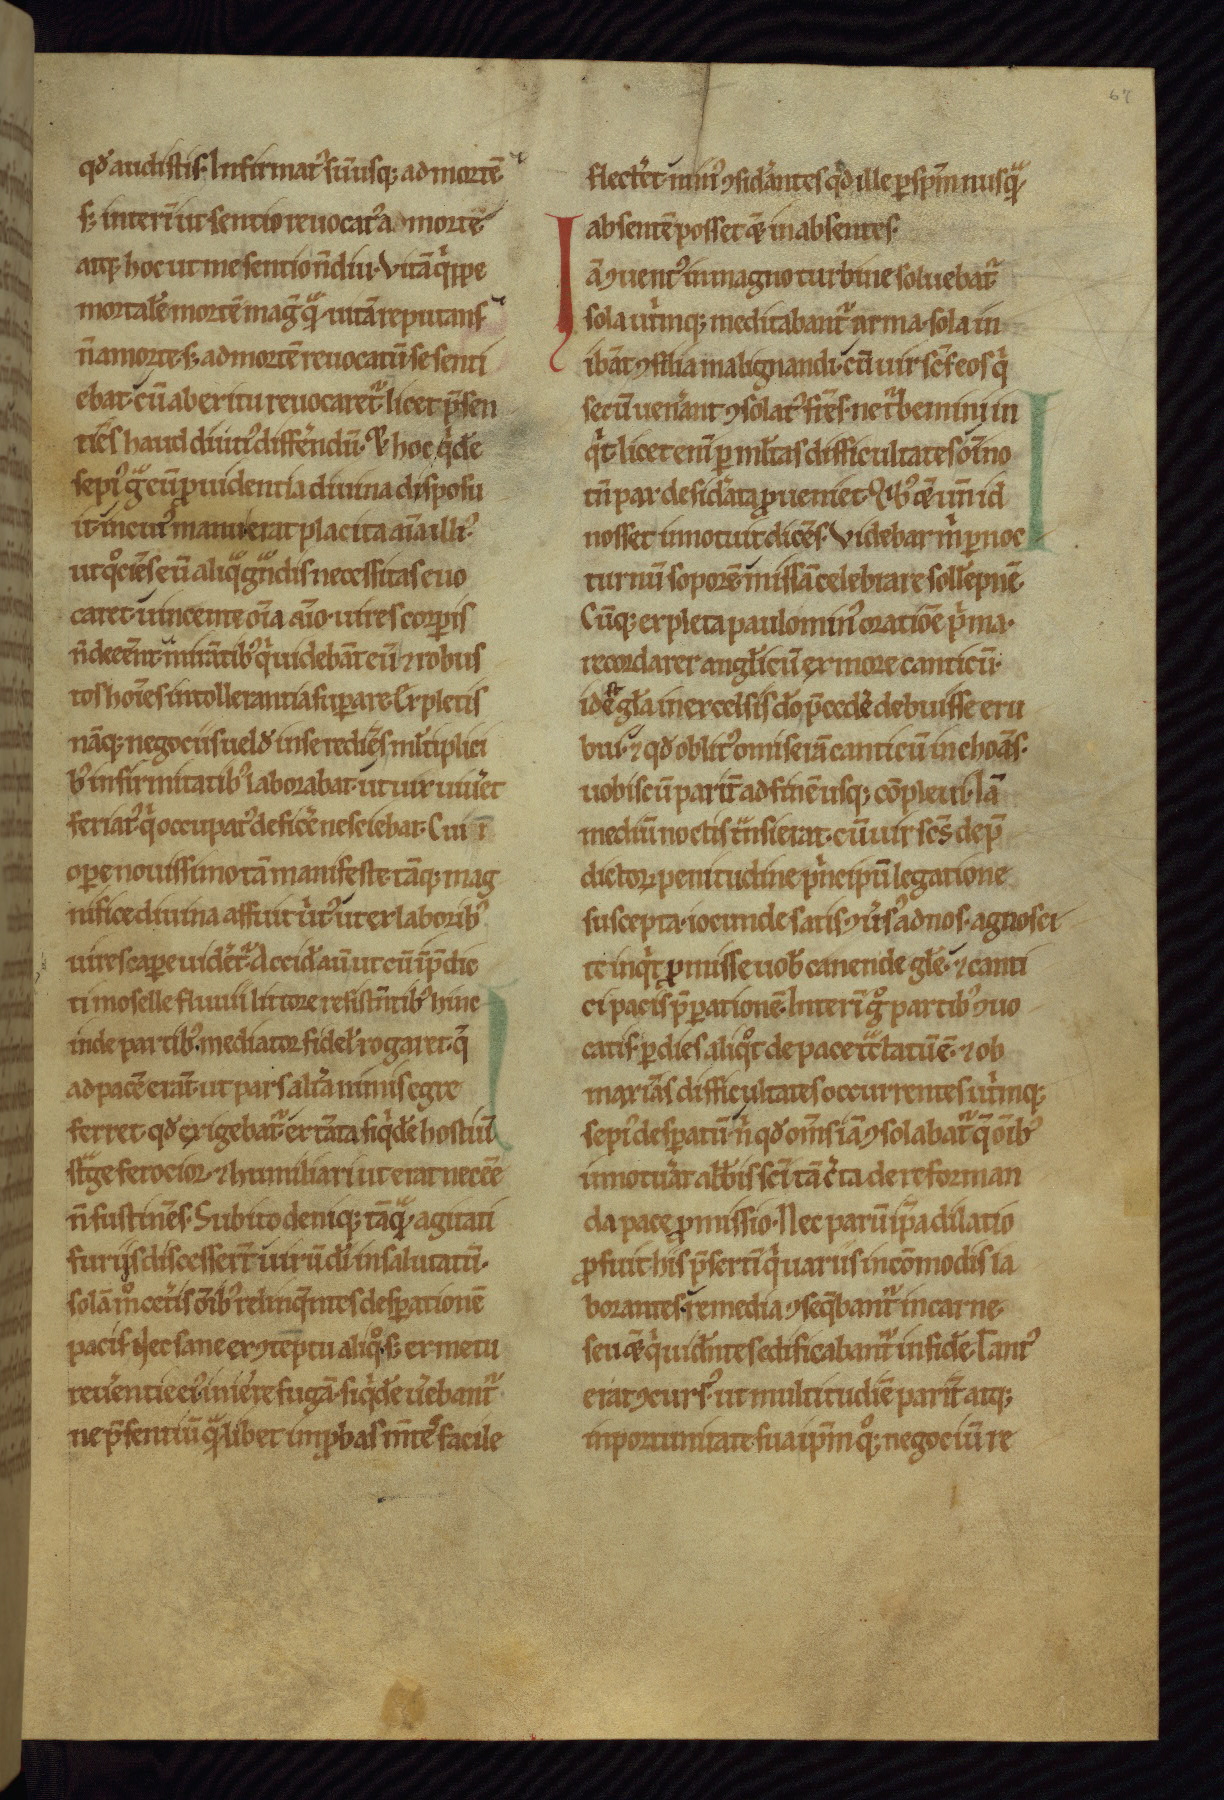 qđ audistis. Infirmatꝰ sū usq; ad mortē
s; interī ut sentio reuocatꝰ a morte.
atq; hoc ut me sentio n̄ diu. Vitā qͥppe
mortalē mortē magͣ qͣ uitā reputans
n̄ a morte. s; ad mortē reuocatū se senti
ebat. cū ab exitu reuocaretͬ licet p̄sen
tiēs haud diutiꝰ differendū. & hoc qͥdē
sepiꝰ gͣ cū ꝓuidentia diuina disposu
it. in cuiꝰ manu erat placita aīa illiꝰ
ut qͦciēs eū aliqͣ gͣndis necessitas euo
caret. uincente oīa aīo uires corꝑis
n̄ deeēnt. mirātibꝰ qͥ uidebāt eū & robus
tos hoīes in tollerantia suꝑare. Expletis
nāq; negociis uelđ in se rediēs mltiplici
bꝰ infirmitatibꝰ laborabat. ut uix uiueret
feriatꝰ qͥ occupatꝰ deficere nesciebat. Cui ī
oꝑe nouissimo tā manifeste. tāq; mag
nifice diuina affuit uirtꝰ. ut ex laboribꝰ
uires caꝑe uideretͬ. Accid̄ aū ut cū ip̄ dic
ti moselle fluuii littore resistētibꝰ hinc
inde partibꝰ. mediator fidel̛ rogaret. q̄
ad pacē erāt. ut pars altera nimis egre
ferret qđ exigebatͬ. ex tāta siqͥdē hostiū
stͣge ferocior. & humiliari ut erat necēe
n̄ sustinēs. Subito deniq; tāqͣ agitati
furiis discesserūt uirū dei insalutatū.
solā mͦ ceteris oībꝰ relinq̄ntes desꝑationē
pacis. Hec sane ex ꝯtēptu aliqͦ. s; ex metu
reuerentie eiꝰ inierē fugā. siqͥdē uerebantͬ
ne p̄sentiū qͣslibet improbas mēteſ facile
flecteret. minꝰ ꝯsiderantes qđ ille ꝑ spm̄ nusqͣ
absentē posset & in absentes.
Iā ꝯuentꝰ in magno turbine soluebatͬ
sola utrimq; meditabantͬ arma. sola in
ibāt ꝯsilia malignandi. cū uir sc̄s eos qͥ
secū uenerant ꝯsolatꝰ fr̄es. ne tͬbemini in
qͥt. licet enī ꝑ mltas difficultates oīno
tn̄ pax desiderata ꝓueniet. Qͥbꝰ & un̄ id
nosset innotuit dicēs. Videbar m̄ ꝑ noc
turnū soporē missā celebrare sollēpnē.
Cūq; expleta paulominꝰ oratiōe pͥma.
recordarer anglicū ex more canticū.
id ē gl̄a in excelsis do p̄cedere debuisse eru
bui. & qđ oblitꝰ omiserā canticū inchoās.
uobiscū pariť ad finē usq; cōpleui. Iā
mediū noctis tͣnsierat. cū uir scs̄ de p̄
dictoꝝ penitudine pͥncipū legatione
suscepta. iocunde satis ꝯuersꝰ ad nos. agnosci
te inqͥt ꝓmisse uob̄ canende gl̄e. & canti
ci pacis p̄parationē. Interī gͦ partibꝰ ꝯuo
catis. ꝑ dies aliqͦt de pace tͣctatū ē. & ob
maximas difficultates occurrentes utrimq;
sepiꝰ desꝑatū. n̄ qđ om̄s iā ꝯsolabatͬ q̄ oībꝰ
innotuerat abb̄is sc̄i tā certa de reforman
da pace ꝓmissio. Nec parū ip̄a dilatio
ꝓfuit his p̄sertī qͥ uariis incōmodis la
borantes. remedia ꝯseq̄bantͬ in carne.
seu & qͥ uidentes edificabantͬ in fide. Tantꝰ
erat ꝯcursꝰ. ut multitudīe pariť atq;
inportunitate sua ip̄m qͦq; negociū re